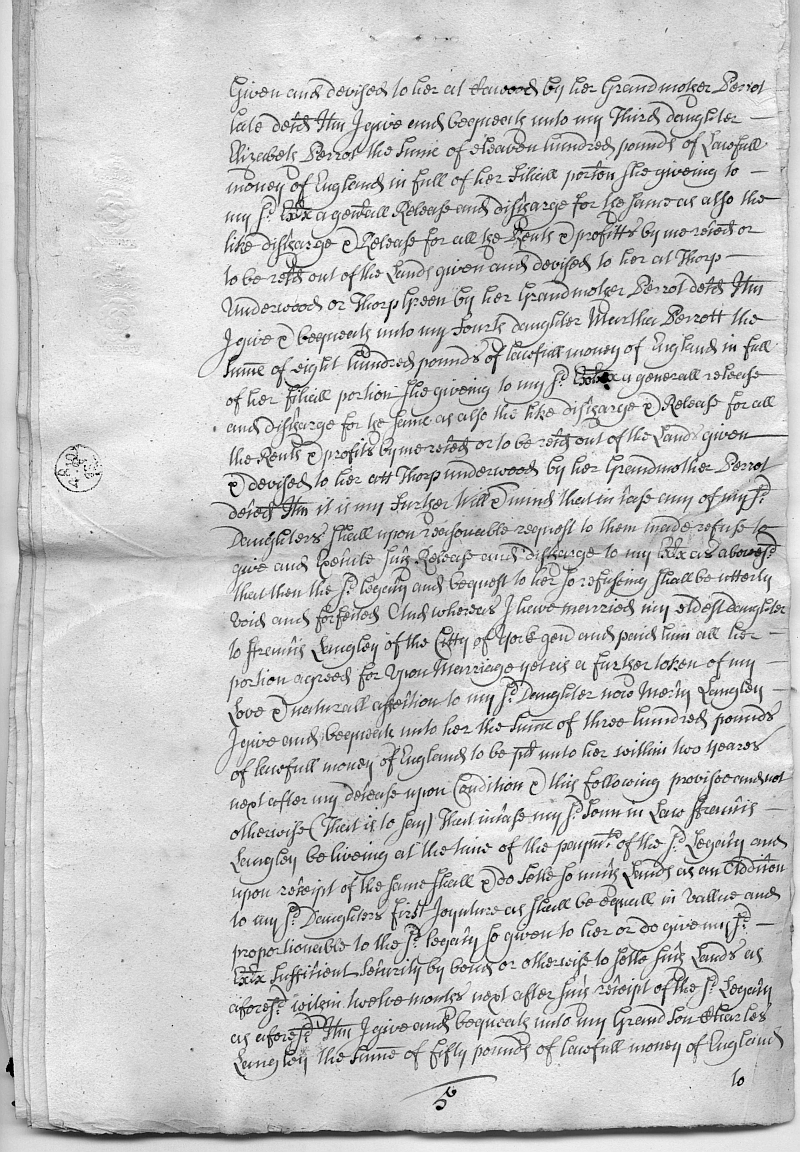 Given and devised to her at Harwood by her Grandmother Perrot
late decd Itm I give and bequeath unto my Third daughter
Elizabeth Perrot the Sume of eleaven hundred pounds of Lawfull
money of England in full of her filiall porton she giveing to
my sd Exx a genrall Release and discharge for the same as also the
like discharge & Release for all the Rents & profitts by me recd or
to be recd out of the Lands given and devised to her at Thorp
Underwood or Thorp Green by her Grandmother Perrot decd Itm
I give & bequeath unto my Fourth daughter Martha Perrott the
Sume of eight hundred pounds of lawfull money of England in full
of her filiall portion she giveing to my sd Exx a generall release
and discharge for the same as also the like discharge & Release for all
the Rents & profits by me recd or to be recd out of the Lands given
& devised to her att Thorp underwood by her Grandmother Perrot
decd Itm it is my further Will & mind that in case any of my sd
Daughters shall upon reasonable request to them made refuse to
give and Execute such Release and discharge to my Exx as aboversd
that then the sd legacy and bequest to her so refuseing shall be utterly
void and forfeited And whereas I have married my eldest daughter
to Francis Langley of the Citty of York gen and paid him all her
portion agreed for upon Marriage yet as a further token of my
Love & naturall affection to my sd Daughter now Mercy Langley
I give and bequeath unto her the Sume of three hundred pounds
of lawfull money of England to be pd unto her within two yeares
next after my decease upon Condition & this following provisoe and not
otherwise (That is to say) That incase my sd Sonn in Law Francis
Langley be liveing at the time of the paymt of the sd Legacy and
upon receipt of the same shall & do settle so much Lands as an Additon
to my sd Daughters first Joynture as shall be equall in vallue and
proportionable to the sd legacy so given to her or do give my sd
Exx Sufficient Security by bond or otherwise to settle such Lands as
aforesd within twelve months next after such receipt of the sd Legacy
as aforesd Itm I give and bequeath unto my Grand Son Charles
Langley the Sume of fifty pounds of lawfull money of England
to
5